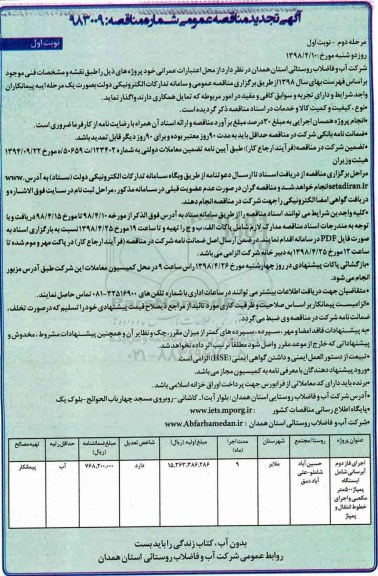 آگهی تجدید مناقصه عمومی شماره مناقصه: ۹۸۳۰۰۹
نوبت اول
مرحله دوم - نوبت اول
روز دوشنبه مورخ: ۱۳۹۸/۴/۱۰
شرکت آب و فاضلاب روستائی استان همدان در نظر دارد از محل اعتبارات عمرانی خود پروژه های ذیل را طبق نقشه و مشخصات فنی موجود
براساس فهرست بهای سال ۱۳۹۸ از طریق برگزاری مناقصه عمومی و سامانه تدارکات الکترونیکی دولت بصورت یک مرحله ای به پیمانکاران
واجد شرایط و دارای تجربه و سوابق کافی و مفید در امور مربوطه که تمایل همکاری دارند واگذار نماید.
*نوع، کیفیت و کمیت کالا و خدمات در اسناد مناقصه ذکر گردیده است.
*انجام پروژه همسان اجرایی به مبلغ ۲۰ درصد مبلغ برآورد مناقصه و ارائه اسناد آن همراه با رضایت نامه از کارفرما ضروری است.
*ضمانت نامه بانکی شرکت در مناقصه حداقل باید به مدت ۹۰ روز معتبر بوده و برای ۹۰ روز دیگر قابل تمدید باشد.
*تضمین شرکت در مناقصه (فرآیند ارجاع کار): طبق آیین نامه تضمین معاملات دولتی به شماره ۱۲۳۴۰۲/ت ۵۰۶۵۹ ه مورخ ۱۳۹۴/۰۹/۲۲
هیئت وزیران
مراحل برگزاری مناقصه از دریافت اسناد تا ارسال دعوتنامه از طریق وبگاه سامانه تدارکات الکترونیکی دولت (ستاد) به آدرس www.
setadiran.ir انجام خواهد شد و مناقصه گران در صورت عدم عضویت قبلی در سامانه مذکور، مراحل ثبت نام در سایت فوق الاشاره و
دریافت گواهی امضا الکترونیکی را جهت شرکت در مناقصه انجام دهند.
*کلیه واجدین شرایط می توانند اسناد مناقصه را از طریق سامانه ستاد به آدرس فوق الذکر از مورخه ۹۸/۴/۱۰ تا مورخ ۹۸/۴/۱۵ دریافت و با
توجه به مندرجات اسناد مناقصه مدارک لازم شامل پاکات الف، ب و ج را تهیه و تا ساعت ۱۹ مورخ ۱۳۹۸/۴/۲۵ نسبت به بارگزاری اسناد به
صورت فایل PDF در سامانه اقدام نمایند و در ضمن ارسال اصل ضمانت نامه شرکت در مناقصه (فرآیند ارجاع کار) در پاکت مهر و موم شده تا
ساعت ۱۲ مورخ ۱۳۹۸/۴/۲۵ به دبیر خانه شرکت الزامی می باشد.
*بازگشائی پاکات پیشنهادی در روز چهارشنبه مورخ ۱۳۹۸/۴/۲۶ راس ساعت ۹ در محل کمیسیون معاملات این شرکت طبق آدرس مزبور
انجام می شود.
*متقاضیان جهت دریافت اطلاعات بیشتر می توانند در ساعات اداری با شماره تلفن های ۳۲۵۱۶۹۰۰-۰۸۱ تماس حاصل نمایند.
*الزامیست پیمانکار بر اساس صلاحیت و ظرفیت کاری مورد تائید از مراجع ذیصلاح قیمت پیشنهادی خود را تسلیم که در صورت تخلف،
ضمانت نامه شرکت در مناقصه وی ضبط می گردد.
*به پیشنهادات فاقد امضا و مهر، سپرده، سپرده های کمتر از میزان مقرر، چک و نظایر آن و همچنین پیشنهادات مشروط، مخدوش و
پیشنهاداتی که خارج از موعد مقرر واصل شود مطلقا ترتیب اثر داده نخواهد شد.
*تبعیت از دستور العمل ایمنی و داشتن گواهی ایمنی (HSE) الزامی است.
*ورود پیشنهاد دهندگان با معرفی نامه به کمیسیون مجاز می باشد.
*برنده باید دارای کد معاملاتی از فرابورس جهت پرداخت اوراق خزانه اسلامی باشد.
*آدرس شرکت آب و فاضلاب روستایی استان همدان: بلوار آیت ا.. کاشانی - روبروی مسجد چهار باب الحوائج - بلوک یک
*پایگاه اطلاع رسانی مناقصات کشور : www.iets.mporg.ir
*شرکت آب و فاضلاب روستائی استان همدان : www.Abfarhamedan.ir
عنوان پروژه | روستا/مجتمع | شهرستان | مدت اجرا (ماه) | مبلغ اولیه (ریال) | شاخص تعدیل | مبلغ ضمانتنامه (ریال) | حداقل رتبه | تهیه مصالح
اجرای فاز دوم آبرسانی شامل ایستگاه پمپاژ ۵۰۰ متر مکعبی و اجرای خطوط انتقال و پمپاژ | حسین آباد شاملو-علی آباد دمق | ملایر | ۹ | ۱۵،۳۶۳،۳۸۶،۲۸۶ | دارد | ۷۶۸،۲۰۰،۰۰۰ | آب | پیمانکار
بدون آب، کتاب زندگی را باید بست
روابط عمومی شرکت آب و فاضلاب روستائی استان همدان